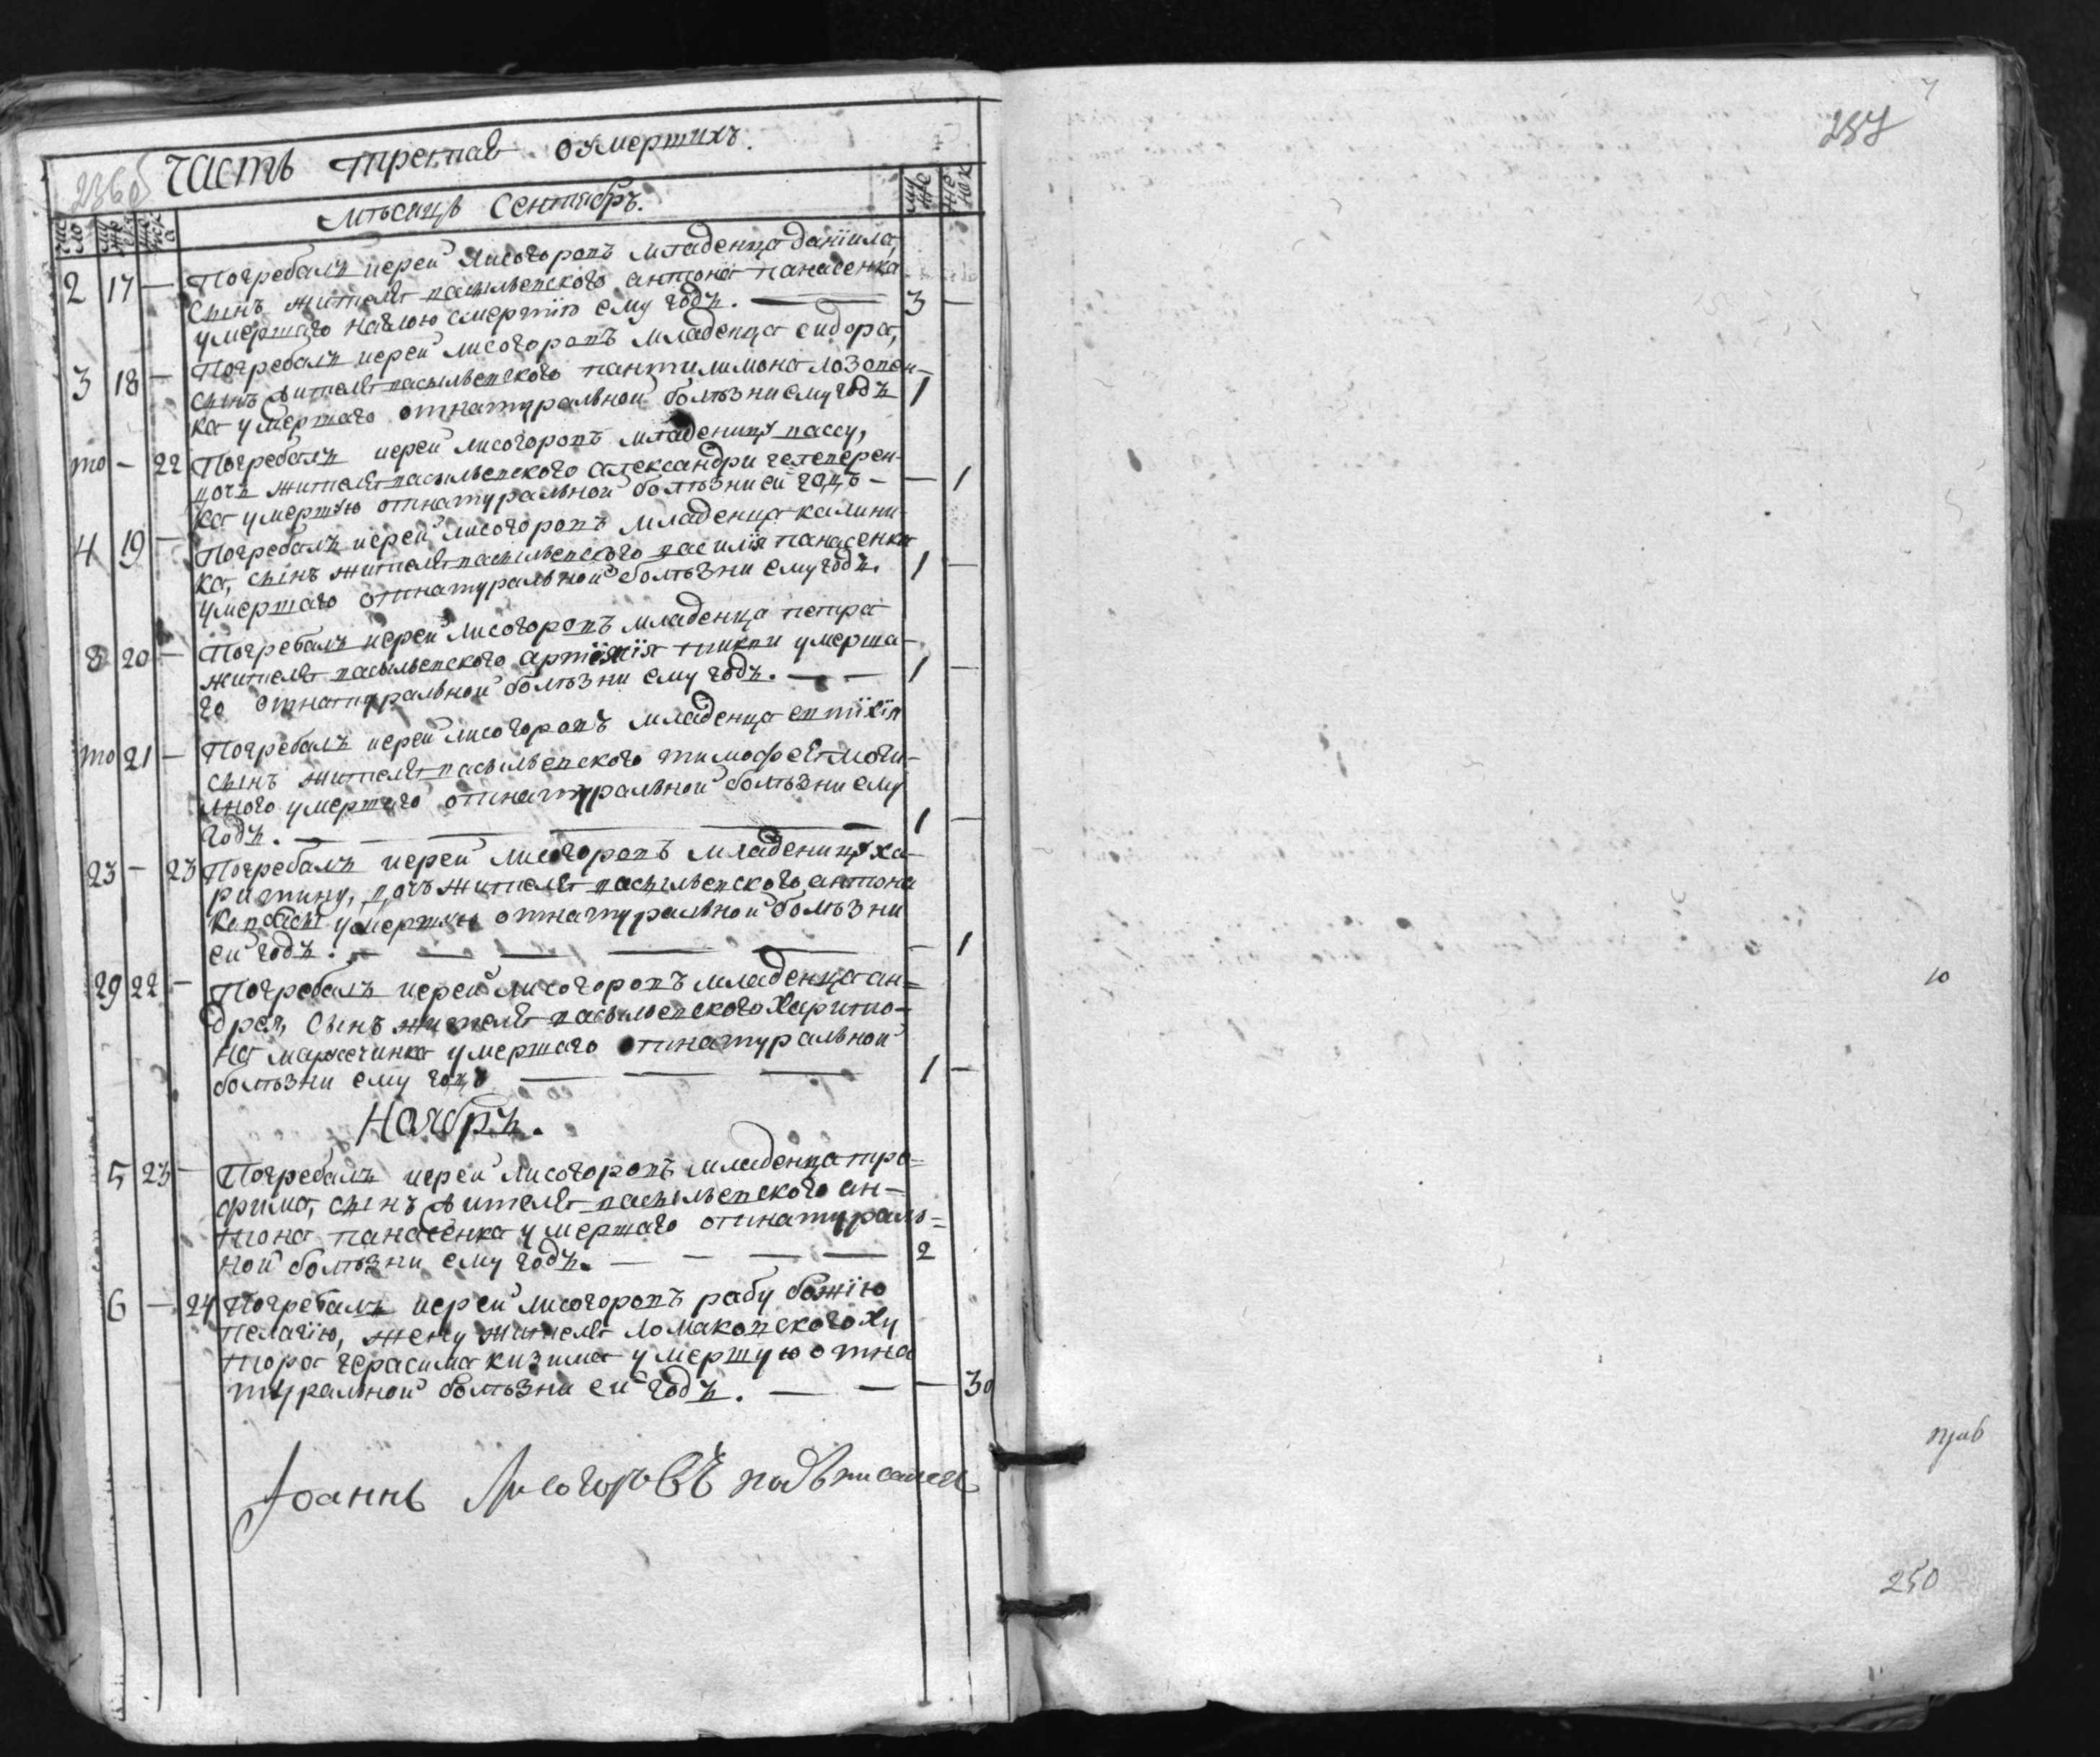 236об
Часть третая о умершихъ.
Мѣсяцъ Сентябръ.
число
муже
женска
2 17 — Погребалъ иерей Лисогоровъ младенца данїила,
сынъ жителя васильевского антона панасенка
умершаго наглою смертїю ему годъ. — 3 —
3 18 — Погребалъ иерей лисогоровъ младенца сидора,
сынъ жителя васильевского пантилимона лозовен-
ка умершаго отнатуральной болѣзни ему годъ 1
то — 22 Погребалъ иерей лисогоровъ младеницу вассу,
дочь жителя васильевского александри чеп
ка умершую отнатуральной болѣзни ей годъ — — 1
4 19 — Погребалъ иерей лисогоровъ младенца калини-
ка, сынъ жителя васильевского василїя панасенка
умершаго отнатуральной болѣзни ему годъ. 1 —
8 20 — Погребалъ иерей лисогоровъ младенца петра
жителя васильевского умерша-
го отнатуральной болѣзни ему годъ. — — 1 —
то 21 — Погребалъ иерей лисогоровъ младенца евтїхїя
сынъ жителя васильевского тимофея моги-
лного умершаго отнатуральной болѣзни ему
годъ. — — — — — 1 —
23 — 23 Погребалъ иерей лисогоровъ младеницу ха-
ритину, дочь жителя васильевского антона
ковбасы умершую отнатуральной болѣзни
ей годъ. — — — — — — 1
29 22 — Погребалъ иерей лисогоровъ младенца ан=
дрея, сынъ жителя васильевского Харито-
на умершаго отнатуральной
болѣзни ему годъ — — — 1 —
Ноябръ.
5 23 — Погребалъ иерей лисогоровъ младенца тро=
фима, сынъ жителя васильевского ан-
тона панасенка умершаго отнатураль=
ной болѣзни ему годъ. — — — — 2
6 — 24 Погребалъ иерей лисогоровъ рабу божїю
пелагїю, жену жителя ломаковского Ху
тора герасима кизима умершую отна
туральной болѣзни ей годъ. — — — 30
Иоаннъ Лисогоровъ подъписался
237
10
250